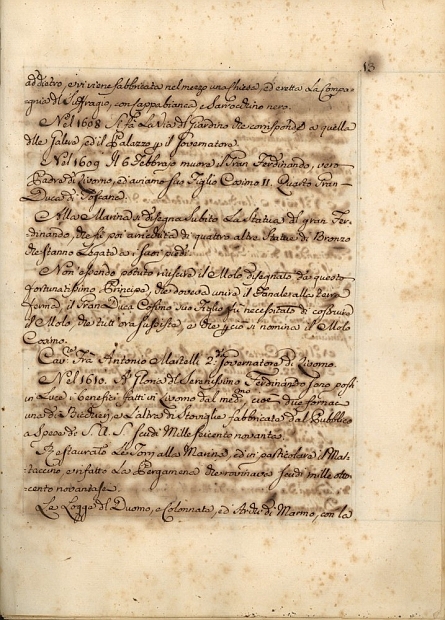 13
addietro, e vi viene fabbricata nel mezzo una chiesa ed eretta La Compa-
gnia del Suffragio, con Cappa bianca, e Sarrocchino nero.
Nel 1608 si fà La Via del Giardino che corrisponde a quella
delle Galere, ed il Palazzo p il Governatore.
Nel 1609 Il 6 Febbrajo muore il Gran Ferdinando, vero
Padre di Livorno, ed aviamo suo Figlio Cosimo II. Quarto Gran
Duca di Toscana.
Alla Marina si disegna subito La Statua del gran Fer-
dinando, che fè poi arricchita di quattro altre Statue di Bronzo
che stanno Legate a i suoi piedi.
Non essendo potuto riuscire il Molo disegnato da questo
fortunatissimo Principe, che doveva unire il Fanale alla terra
ferma, il Gran Duca Cosimo suo Figlio fù necessitato di costruire
il Molo che tutt'ora sussiste, e che p ciò si nomina il Molo
Cosimo.
Cav. Frà Antonio Martelli 2.º Governatore di Livorno.
Nel 1610. A Gloria del Serenissimo Ferdinando sono posti
in Luce i benefizi fatti in Livorno dal med.mo, cioè due fornaci
una di Bicchieri e l'altra di Stoviglie fabbricate dal Pubblico
a Spese di S. A. S. Scudi Mille secento novanta.
Restaurato Le Torri alla Marina, ed in particolare il Mar-
zocco, e rifatto La che rovinava scudi mille otto-
cento novanta sei.
Le Logge del Duomo, e Colonnata, ed Archi di Marmo, con la